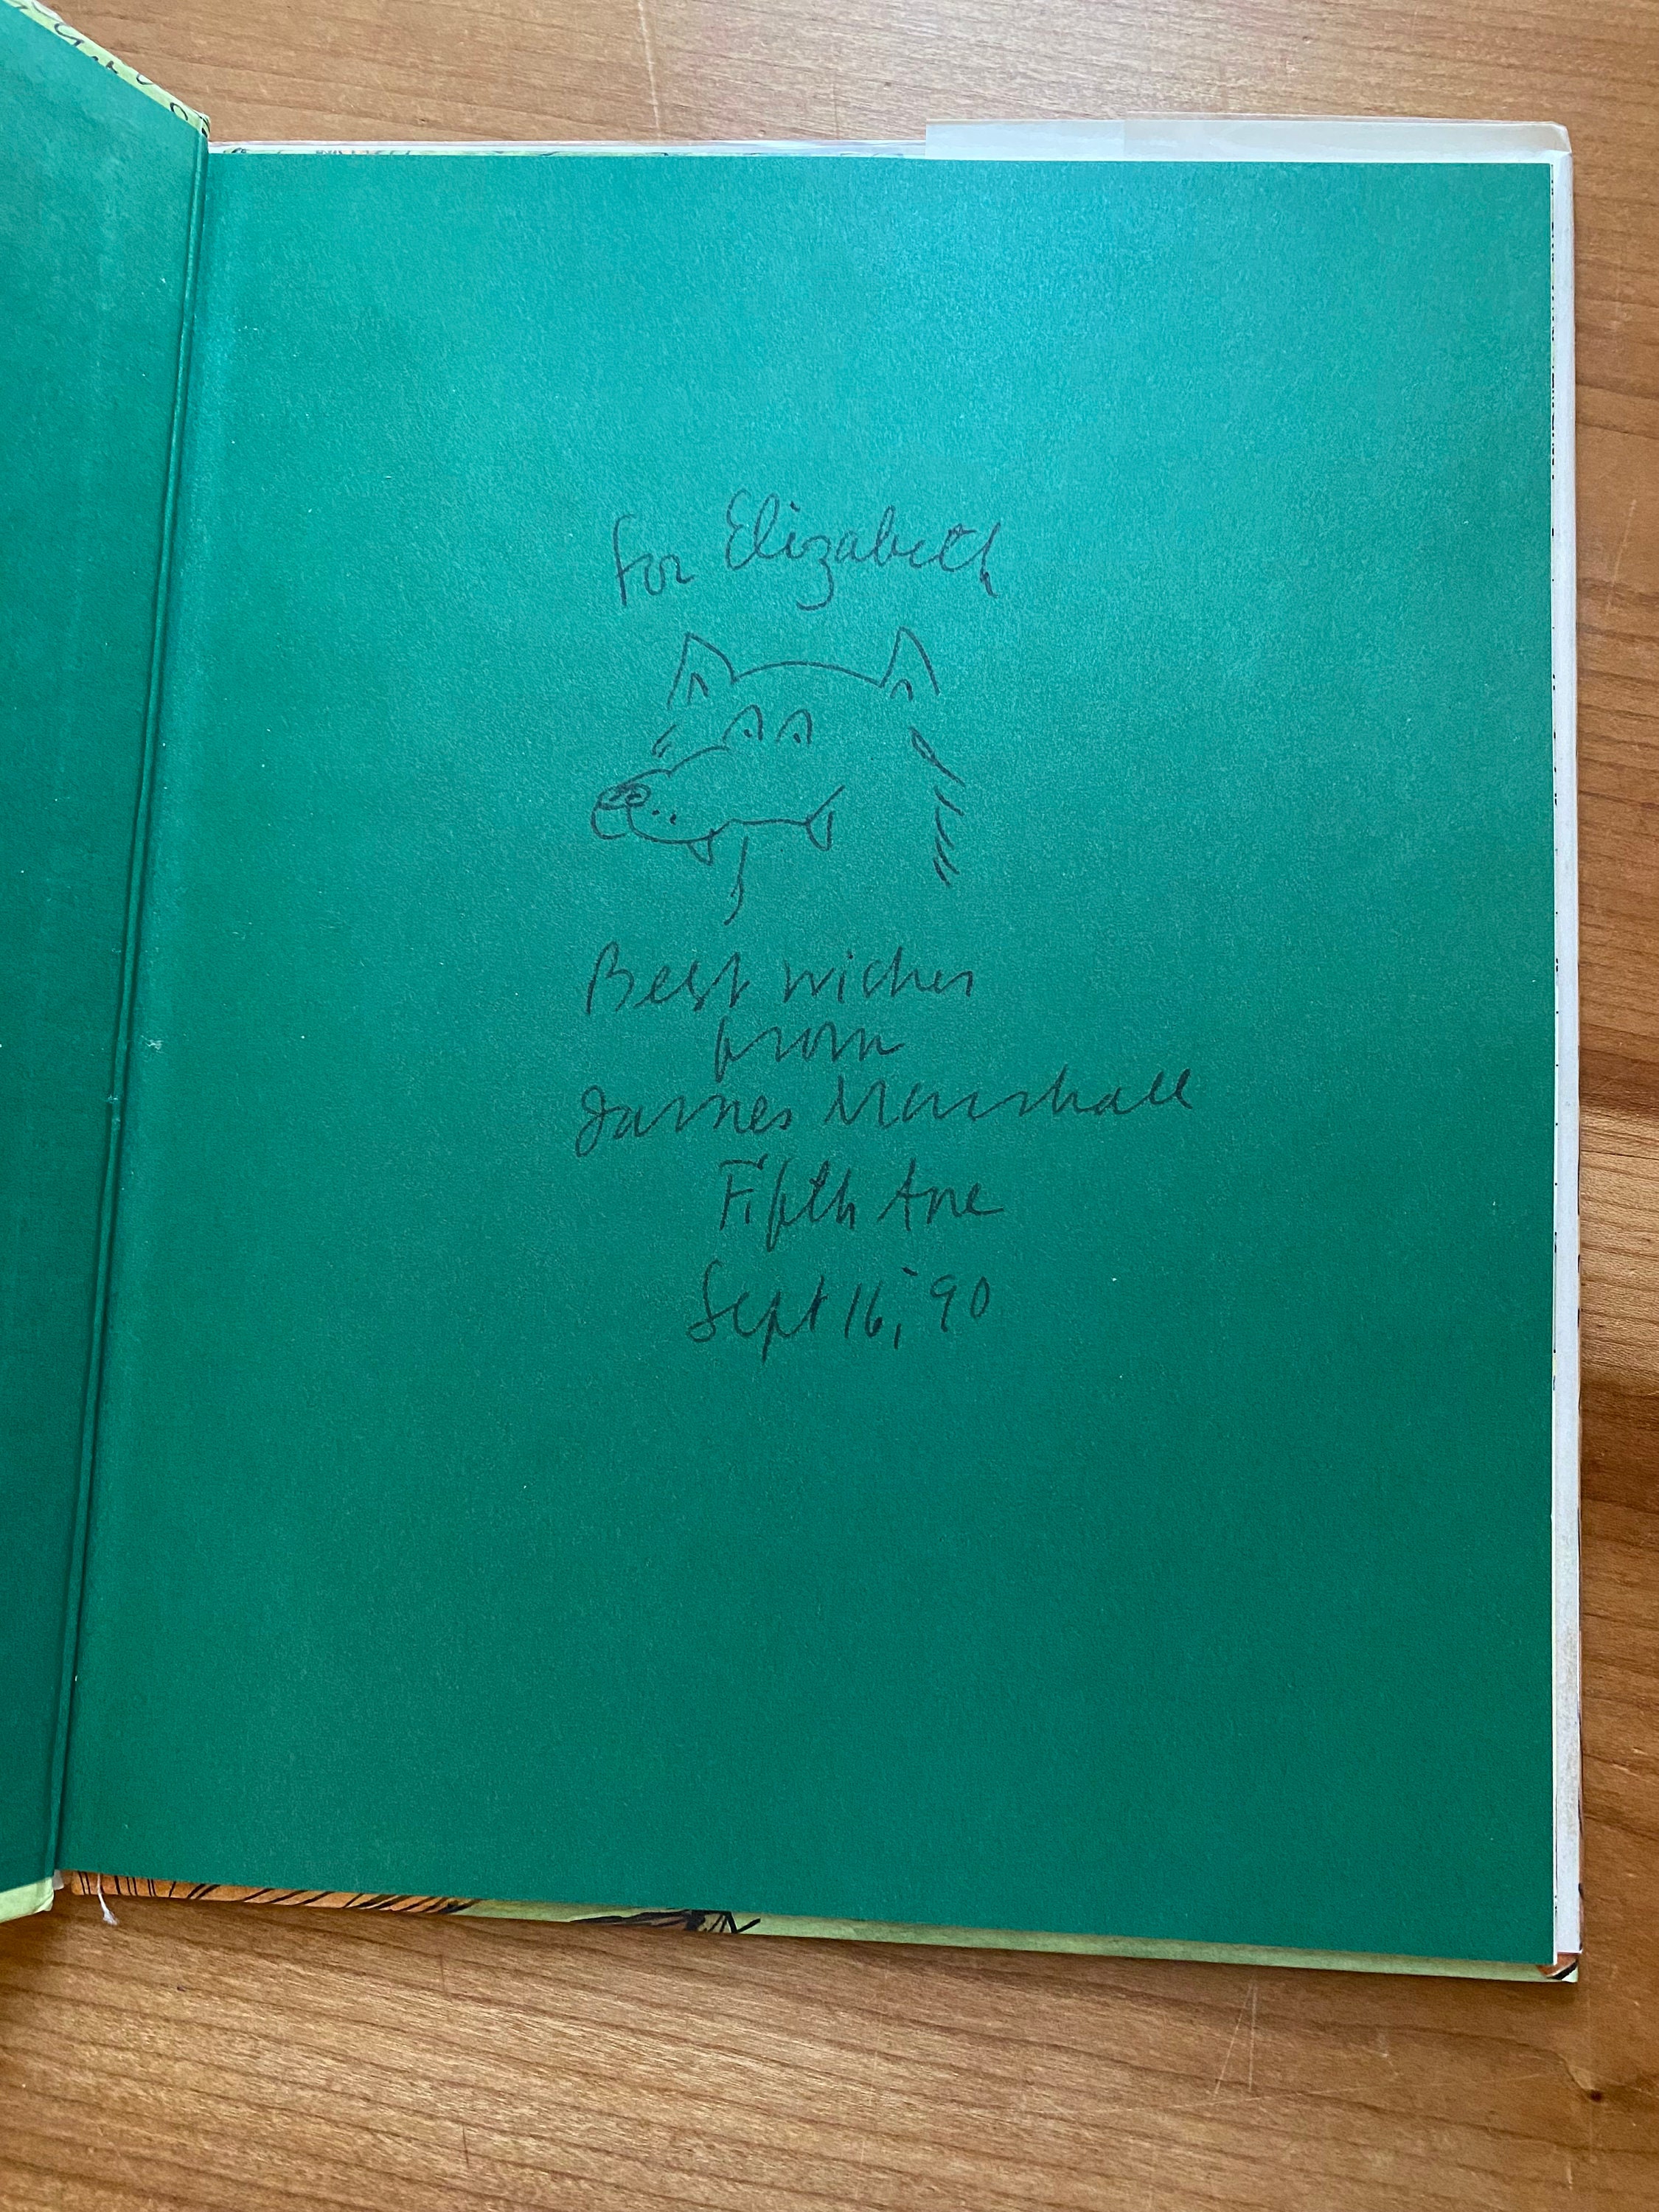 For Elizabeth
Best wishes
from
James Marshall
Fifth Ave
Sept 16, '90